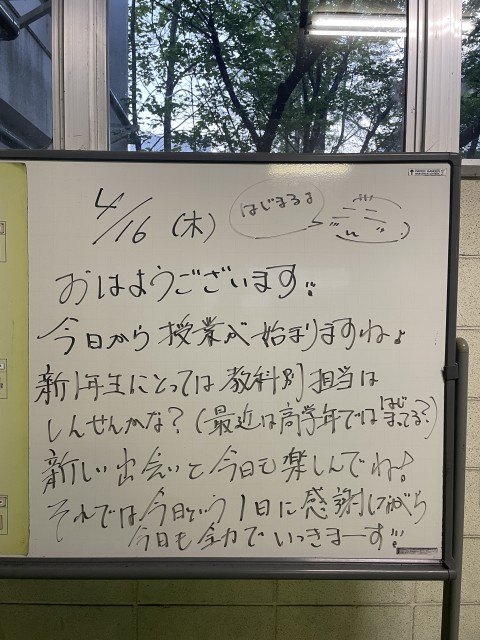 4/16(木)
はじまるよ
おはようございます!!
今日から授業が始まりますね♪
新1年生にとっては教科別担当は
しんせんかな?(最近は高学年でははじまってる?)
新しい出会いと今日も楽しんでね!
それでは、今日という1日に感謝しながら
今日も全力でいっきまーす!!